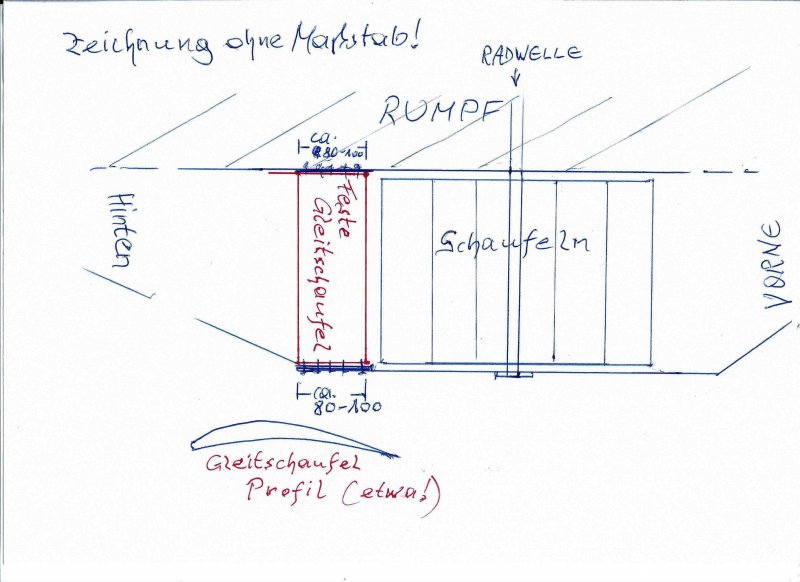 Zeichnung ohne Maßstab!
RADWELLE
RUMPF
ca.
80-100
Hinten
Feste
Gleitschaufel
Schaufeln
VORNE
ca.
80-100
Gleitschaufel
Profil (etwa!)